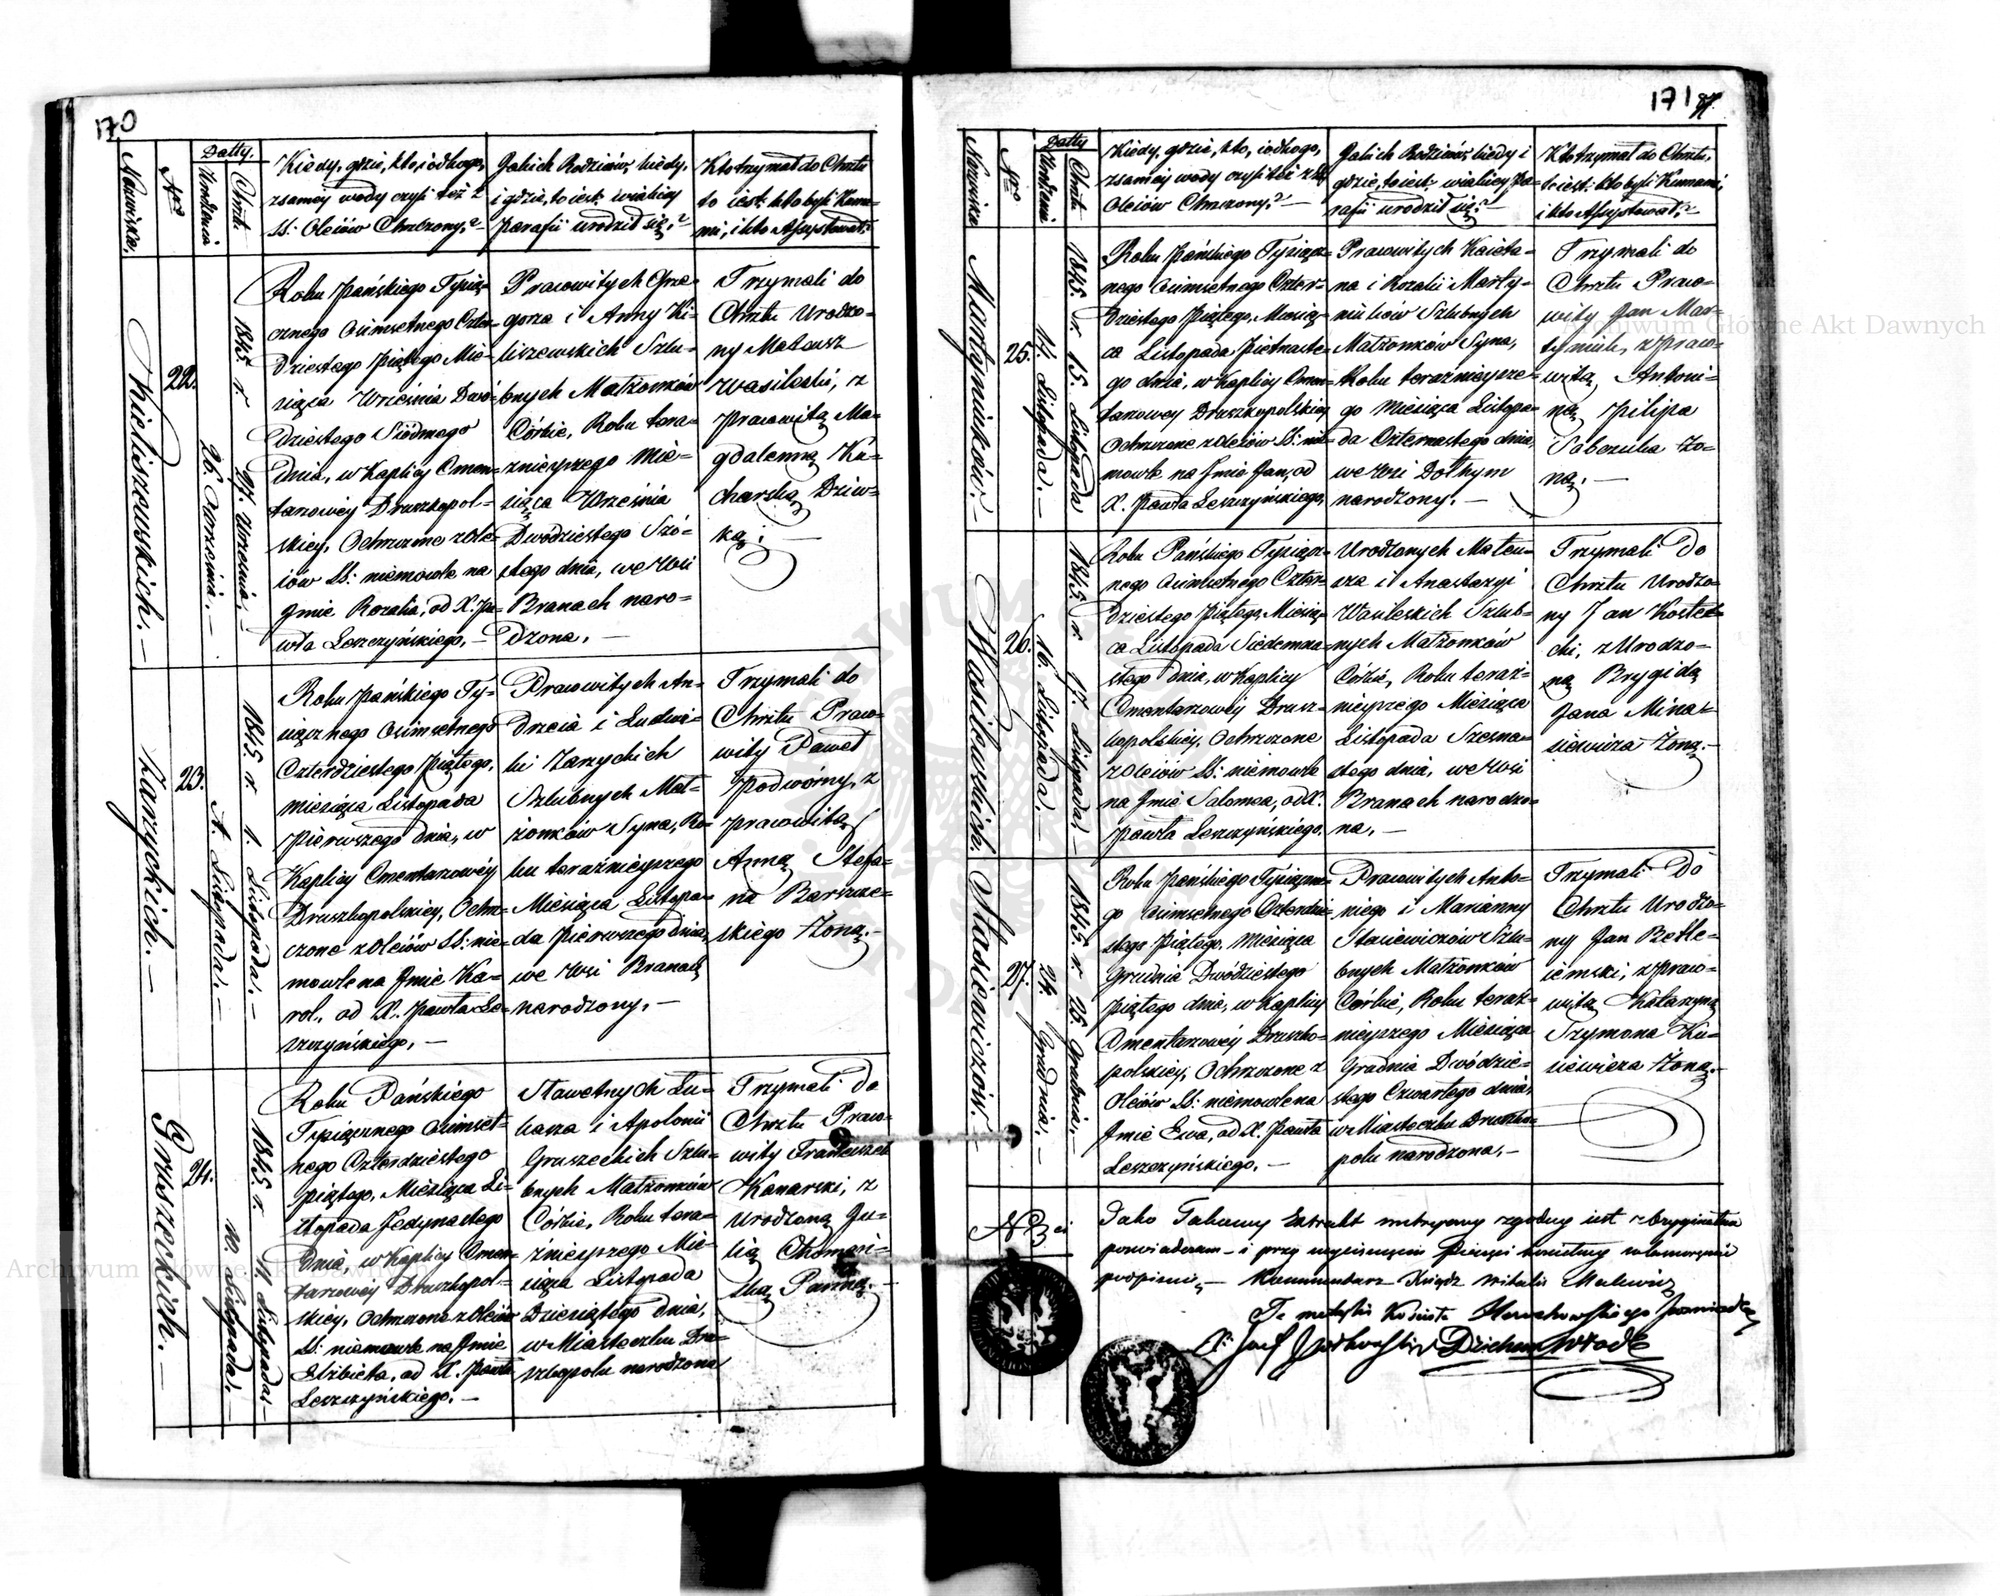 170
Nazwiska.
Nro
Datty.
Urodzenia
Chrztu.
Kiedy, gdzie, kto, i od kogo,
z samey wody czyli też z
SS: Oleiów Chrzczony?
Jakich Rodziców, kiedy,
i gdzie, to iest: w iakiey
Parafii urodził się?
Kto trzymał do Chrztu
to iest: kto byli Kuma=
mi, i kto Assystował?
Kieliszewskich. —
22.
26. Września. —
1845 r. 27. Września. —
Roku Pańskiego Tysią=
cznego Ośmsetnego Czter=
dziestego Piątego Mie=
siąca Września Dwó=
dziestego Siódmego
dnia, w Kaplicy Cmen=
tarzowey Druszkopol=
skiey, Ochrzczone z Ole=
iów SS: niemowle na
Jmie Rozalia, od X. Pa=
wła Leszczyńskiego. —
Pracowitych Grze=
gorza i Anny Ki=
liszewskich Szlu=
bnych Małżonków
Córkie, Roku tera=
znieyszego Mie=
siąca Września
Dwódziestego Szó=
stego dnia, we Wsi
Branach naro=
dzona. —
Trzymali do
Chrztu Urodzo=
ny Mateusz
Wasileski, z
Pracowitą Ma=
gdalenną Ku=
charską Dziw=
ką. —
Karzyckich. —
23.
1. Listopada. —
1845 r. 1. Listopada. —
Roku Pańskiego Ty=
siącznego Ośmsetnego
Czterdziestego Piątego,
miesiąca Listopada
Pierwszego dnia, w
Kaplicy Cmentarzowey
Druszkopolskiey, Ochrz=
czone z Oleiów SS: nie=
mowle na Jmie Ka=
rol, od X. Pawła Le=
szczyńskiego. —
Pracowitych An=
drzeia i Ludwi=
ki Karzyckich
Szlubnych Mał=
żonków Syna, Ro=
ku teraźnieyszego
Miesiąca Listopa=
da Pierwszego dnia,
we Wsi Branach
narodzony. —
Trzymali do
Chrztu Praco=
wity Paweł
Podworny, z
Pracowitą
Anną Stefa=
na Barszcze=
skiego Żoną. —
Gruszeckich. —
24.
10. Listopada. —
1845 r. 11. Listopada. —
Roku Pańskiego
Tysiącznego Ośmset=
nego Czterdziestego
Piątego, Miesiąca Li=
stopada Jedynastego
dnia, w Kaplicy Cmen=
tarzowey Druszkopol=
skiey, Ochrzczone z Oleiów
SS: niemowle na Jmie
Elżbieta, od X. Pawła
Leszczyńskiego. —
Sławetnych Łu=
kasza i Apolonii
Gruszeckich Szlu=
bnych Małżonków
Córkie, Roku tera=
źnieyszego Mie=
siąca Listopada
Dziesiątego dnia,
w Miasteczku Dru=
szkopolu narodzona
Trzymali do
Chrztu Praco=
wity Franciszek
Kanarski, z
Urodzoną Ju=
lią Chomen=
ską Panną. —
171
Nazwiska
Nro
Datty
Urodzenia
Chrztu
Kiedy, gdzie, kto, i od kogo,
z samey wody czyli też z SS:
Oleiów Chrzczony? —
Jakich Rodziców, kiedy i
gdzie, to iest: w iakiey Pa=
rafii urodził się? —
Kto trzymał do Chrztu,
to iest: kto byli Kumami,
i kto Assystował? —
Martyniuków. —
25.
14. Listopada. —
1845. r. 15. Listopada
Roku Pańskiego Tysiącz=
nego Ośmsetnego Czter=
dziestego Piątego, Miesią=
ca Listopada Piętnaste=
go dnia, w Kaplicy Cmen=
tarzowey Druszkopolskiey
Ochrzczone z Oleiów SS: nie=
mowle na Jmie Jan, od
X. Pawła Leszczyńskiego.
Pracowitych Kaieta=
na i Rozalii Marty=
niuków Szlubnych
Małżonków Syna,
Roku teraźnieysze=
go Miesiąca Listopa=
da Czternastego dnia,
we Wsi Dołhym
narodzony. —
Trzymali do
Chrztu Praco=
wity Jan Mar=
tyniuk, z Praco=
witą Antoni=
ną Filipa
Sobczuka Żo=
ną. —
Wasilewskich. —
26.
16. Listopada. —
1845 r. 17. Listopada. —
Roku Pańskiego Tysiącz=
nego Ośmsetnego Czter=
dziestego Piątego, Miesią=
ca Listopada Siedemna=
stego dnia, w Kaplicy
Cmentarzowey Drusz=
kopolskiey, Ochrzczone
z Oleiów SS: niemowle
na Jmie Salomea, od X.
Pawła Leszczyńskiego.
Urodzonych Mateu=
sza i Anastazyi
Wasileskich Szlub=
nych Małżonków
Córkie, Roku teraź=
nieyszego Miesiąca
Listopada Szesna=
stego dnia, we Wsi
Branach narodzo=
na. —
Trzymali do
Chrztu Urodzo=
ny Jan Kostec=
cki, z Urodzo=
ną Brygidą
Jana Mina=
siewicza Żoną. —
Stasiewiczów. —
27.
24. Grudnia. —
1845. r. 25. Grudnia. —
Roku Pańskiego Tysiączne=
go Ośmsetnego Czterdzie=
stego Piątego, Miesiąca
Grudnia Dwódziestego
Piątego dnia, w Kaplicy
Cmentarzowey Druszko=
polskiey, Ochrzczone z
Oleiów SS: niemowle na
Jmie Ewa, od X. Pawła
Leszczyńskiego. —
Pracowitych Anto=
niego i Marianny
Stasiewiczów Szlu=
bnych Małżonków
Córkie, Roku teraź=
nieyszego Miesiąca
Grudnia Dwódzie=
stego Czwartego dnia,
w Miasteczku Druszko=
polu narodzona. —
Trzymali do
Chrztu Urodzo=
ny Jan Betle=
iemski, z Praco=
witą Katarzyną
Szymona Ku=
siewicza Żoną. —
Jako Takowy Extrakt metryczny zgodny iest z Oryginałem
poswiadczam — i przy wyciśnięciu Pieczęci
podpisuię — Kommendarz Xiądz Witalis Malewicz
Te metryki Kościoła poswiadczam
X. Józef Dziekan Włodz
Archiwum Główne Akt Dawnych
Archiwum Główne Akt Dawnych